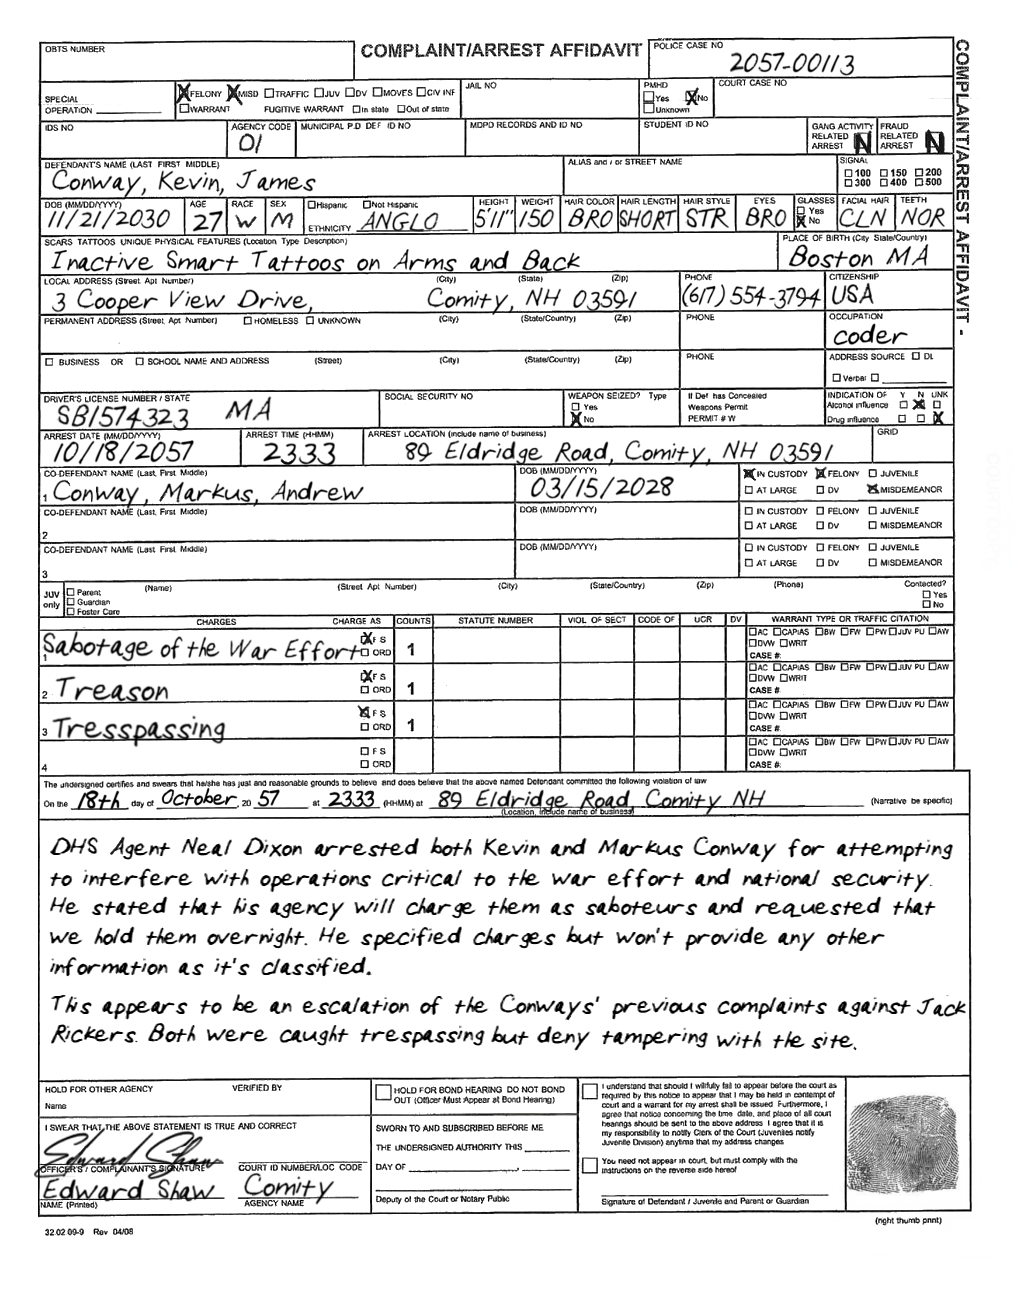 OBTS NUMBER
COMPLAINT/ARREST AFFIDAVIT
POLICE CASE NO
2057-00113
SPECIAL OPERATION
FELONY MISD TRAFFIC JUV DV MOVES CIV INF
WARRANT FUGITIVE WARRANT In state Out of state
JAIL NO
PMHD
Yes No
Unknown
COURT CASE NO
IDS NO
AGENCY CODE
01
MUNICIPAL P.D DEF ID NO
MDPD RECORDS AND ID NO
STUDENT ID NO
GANG ACTIVITY RELATED ARREST N
FRAUD RELATED ARREST N
DEFENDANT'S NAME (LAST FIRST MIDDLE)
Conway, Kevin, James
ALIAS and / or STREET NAME
SIGNAL
100 150 200
300 400 500
DOB (MM/DD/YYYY) AGE RACE SEX Hispanic Not Hispanic HEIGHT WEIGHT HAIR COLOR HAIR LENGTH HAIR STYLE EYES GLASSES Yes No FACIAL HAIR TEETH
11/21/2030 27 W M ETHNICITY ANGLO 5'11" 150 BRO SHORT STR BRO CLN NOR
SCARS TATTOOS UNIQUE PHYSICAL FEATURES (Location Type Description)
Inactive Smart Tattoos on Arms and Back
PLACE OF BIRTH (City State/Country)
Boston MA
LOCAL ADDRESS (Street Apt Number) (City) (State) (Zip)
3 Cooper View Drive, Comity, NH 03591
PHONE
(617) 554-3794
CITIZENSHIP
USA
PERMANENT ADDRESS (Street, Apt Number) HOMELESS UNKNOWN (City) (State/Country) (Zip)
PHONE
OCCUPATION
coder
BUSINESS OR SCHOOL NAME AND ADDRESS (Street) (City) (State/Country) (Zip)
PHONE
ADDRESS SOURCE DL
Verbal
DRIVER'S LICENSE NUMBER / STATE
SB1574323 MA
SOCIAL SECURITY NO
WEAPON SEIZED? Type
Yes
No
If Def has Concealed
Weapons Permit
PERMIT # W
INDICATION OF Y N UNK
Alcohol influence
Drug influence
ARREST DATE (MM/DD/YYYY)
10/18/2057
ARREST TIME (HHMM)
2333
ARREST LOCATION (include name of business)
89 Eldridge Road, Comity, NH 03591
GRID
CO-DEFENDANT NAME (Last, First Middle)
1 Conway, Markus, Andrew
DOB (MM/DD/YYYY)
03/15/2028
IN CUSTODY FELONY JUVENILE
AT LARGE DV MISDEMEANOR
CO-DEFENDANT NAME (Last, First, Middle)
2
DOB (MM/DD/YYYY)
IN CUSTODY FELONY JUVENILE
AT LARGE DV MISDEMEANOR
CO-DEFENDANT NAME (Last, First Middle)
3
DOB (MM/DD/YYYY)
IN CUSTODY FELONY JUVENILE
AT LARGE DV MISDEMEANOR
JUV only
Parent
Guardian
Foster Care
(Name) (Street Apt Number) (City) (State/Country) (Zip) (Phone)
Contacted?
Yes
No
CHARGES CHARGE AS COUNTS STATUTE NUMBER VIOL OF SECT CODE OF UCR DV WARRANT TYPE OR TRAFFIC CITATION
1 Sabotage of the War Effort F S ORD 1
AC CAPIAS BW FW PW JUV PU AW
DVW WRIT
CASE #:
2 Treason F S ORD 1
AC CAPIAS BW FW PW JUV PU AW
DVW WRIT
CASE #
3 Tresspassing F S ORD 1
AC CAPIAS BW FW PW JUV PU AW
DVW WRIT
CASE #:
4 F S ORD
AC CAPIAS BW FW PW JUV PU AW
DVW WRIT
CASE #:
The undersigned certifies and swears that he/she has just and reasonable grounds to believe and does believe that the above named Defendant committed the following violation of law
On the 18th day of October, 20 57 at 2333 (HHMM) at 89 Eldridge Road, Comity NH (Narrative be specific)
(Location, include name of business)
DHS Agent Neal Dixon arrested both Kevin and Markus Conway for attempting
to interfere with operations critical to the war effort and national security.
He stated that his agency will charge them as saboteurs and requested that
we hold them overnight. He specified charges but won't provide any other
information as it's classified.
This appears to be an escalation of the Conways' previous complaints against Jack
Rickers. Both were caught trespassing but deny tampering with the site.
HOLD FOR OTHER AGENCY VERIFIED BY
Name
I SWEAR THAT THE ABOVE STATEMENT IS TRUE AND CORRECT
Edward Shaw
OFFICER'S / COMPLAINANT'S SIGNATURE COURT ID NUMBER/LOC CODE
Edward Shaw Comity
NAME (Printed) AGENCY NAME
HOLD FOR BOND HEARING DO NOT BOND
OUT (Officer Must Appear at Bond Hearing)
SWORN TO AND SUBSCRIBED BEFORE ME
THE UNDERSIGNED AUTHORITY THIS
DAY OF
Deputy of the Court or Notary Public
I understand that should I willfully fail to appear before the court as
required by this notice to appear that I may be held in contempt of
court and a warrant for my arrest shall be issued. Furthermore, I
agree that notice concerning the time date, and place of all court
hearings should be sent to the above address I agree that it is
my responsibility to notify Clerk of the Court (Juveniles notify
Juvenile Division) anytime that my address changes
You need not appear in court, but must comply with the
instructions on the reverse side hereof
Signature of Defendant / Juvenile and Parent or Guardian
(right thumb print)
32.02 09-9 Rev 04/08
COMPLAINT/ARREST AFFIDAVIT -